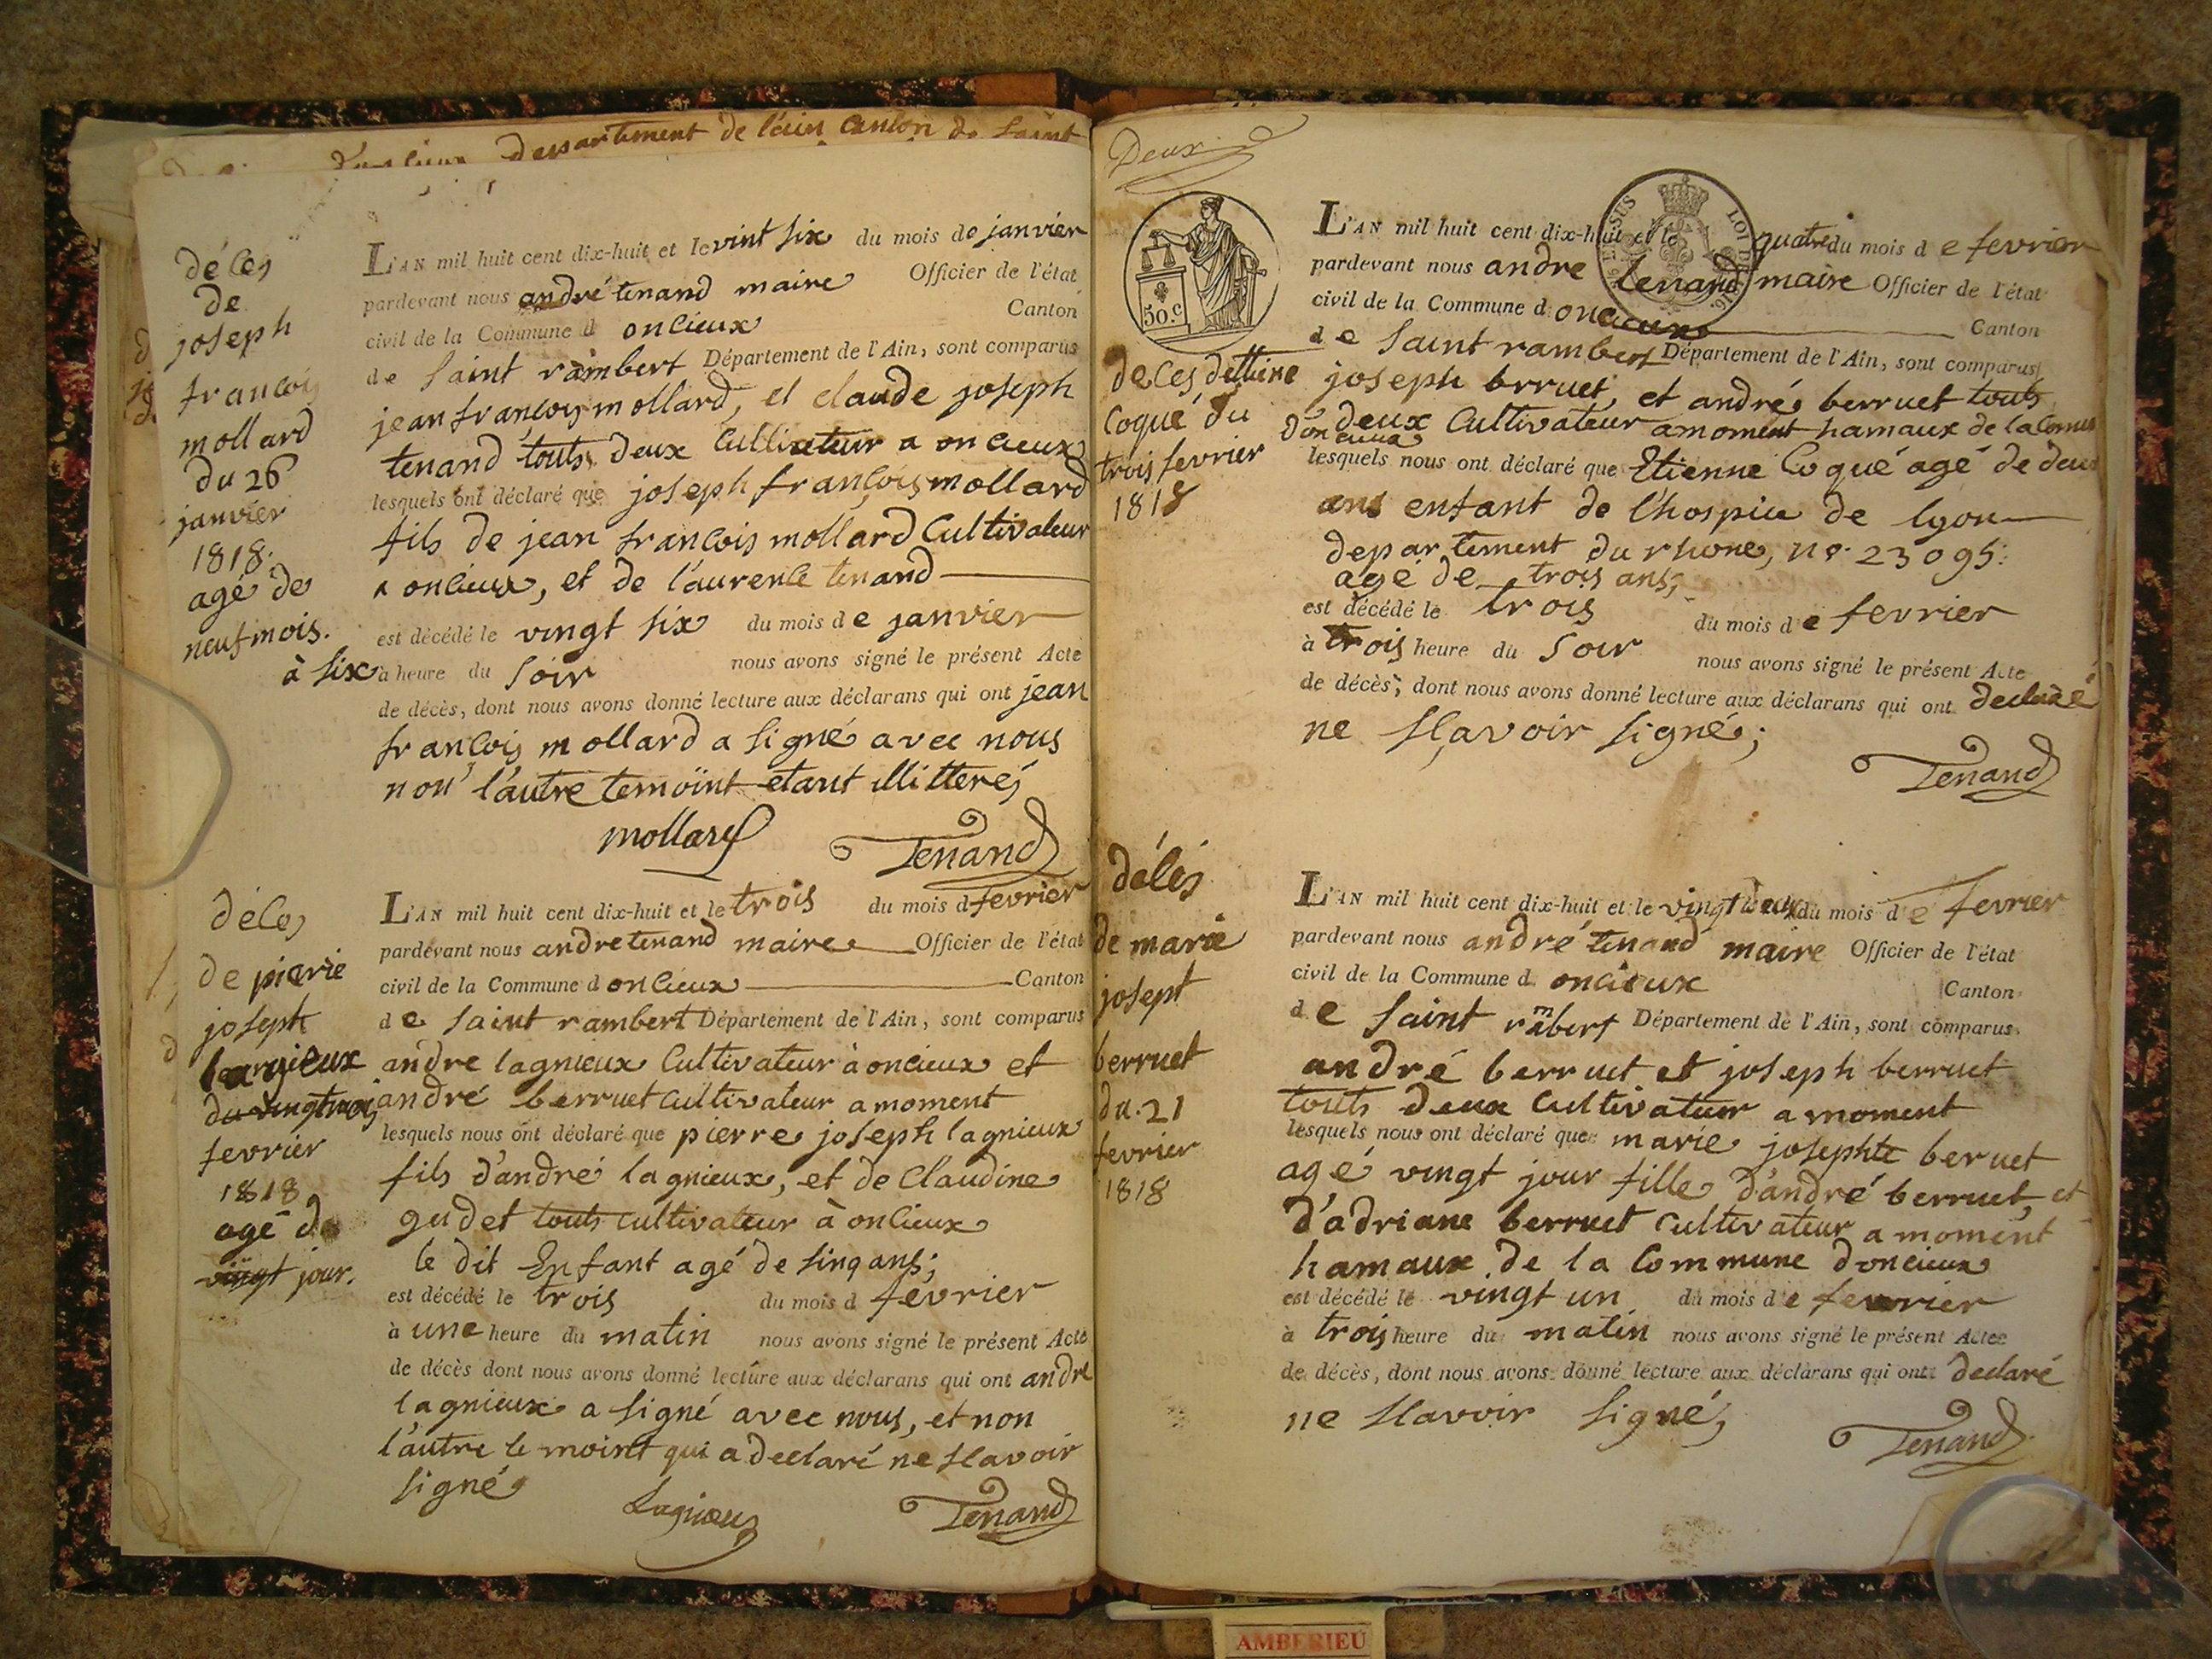 departement de l'ain canton de saint
déces
de
joseph
francois
mollard
du 26
janvier
1818.
agé de
neuf mois.
L'AN mil huit cent dix-huit et le vint six du mois de janvier
pardevant nous andré tenand maire Officier de l'état
civil de la Commune d oncieux Canton
de saint rambert Département de l'Ain, sont comparus
jean françois mollard, et claude joseph
tenand touts deux Cultivateur a oncieux
lesquels ont déclaré que joseph françois mollard
fils de jean francois mollard Cultivateur
a oncieux, et de l'aurence tenand
est décédé le vingt six du mois de janvier
à six à heure du soir nous avons signé le présent Acte
de décès, dont nous avons donné lecture aux déclarans qui ont jean
francois mollard a signé avec nous
non l'autre temoint etant illitteré,
mollard Tenand
déces
de pierie
joseph
lagnieux
du vingt trois
fevrier
1818
agé de
vingt jour.
L'AN mil huit cent dix-huit et le trois du mois d fevrier
pardevant nous andre tenand maire Officier de l'état
civil de la Commune d oncieux Canton
de saint rambert Département de l'Ain, sont comparus
andre lagnieux Cultivateur à oncieux et
andré berruet cultivateur a moment
lesquels nous ont déclaré que pierre joseph lagnieux
fils d'andré lagnieux, et de Claudine
gudet touts cultivateur à oncieux
le dit Enfant agé de sinq ans;
est décédé le trois du mois d fevrier
à une heure du matin nous avons signé le présent Acte
de décès dont nous avons donné lecture aux déclarans qui ont andre
lagnieux a signé avec nous, et non
l'autre te moint qui a declaré ne scavoir
signé
Lagnieux Tenand
Deux
50.c
deces dettiene
coqué du
trois fevrier
1818
L'AN mil huit cent dix-huit et le quatre du mois de fevrier
pardevant nous andre tenand maire Officier de l'état
civil de la Commune d oncieux Canton
de saint rambert Département de l'Ain, sont comparus
joseph brruet, et andré berruet touts
deux Cultivateur a moment hamaux de la Comun
doncieux
lesquels nous ont déclaré que Etienne Coqué agé de deux
ans enfant de l'hospice de lyon
departement du rhone, no. 23095:
agé de trois ans;
est décédé le trois du mois de fevrier
à trois heure du soir nous avons signé le présent Acte
de décès, dont nous avons donné lecture aux déclarans qui ont declaré
ne scavoir signé;
Tenand
décés
de marie
josept
berruet
du. 21
fevrier
1818
L'AN mil huit cent dix-huit et le vingt deux du mois de fevrier
pardevant nous andré tenand maire Officier de l'état
civil de la Commune d. oncieux Canton
de saint rambert Département de l'Ain, sont comparus
andré berruet et joseph berruet
touts deux Cultivateur a moment
lesquels nous ont déclaré que marie josephte beruet
agé vingt jour fille d'andré berruet, et
d'adriane berruet cultivateur a moment
hamaux de la Commune doncieux
est décédé le vingt un du mois de fevrier
à trois heure du matin nous avons signé le présent Acte
de décès, dont nous avons donné lecture aux déclarans qui ont declaré
ne scavoir signé,
Tenand
AMBERIEU